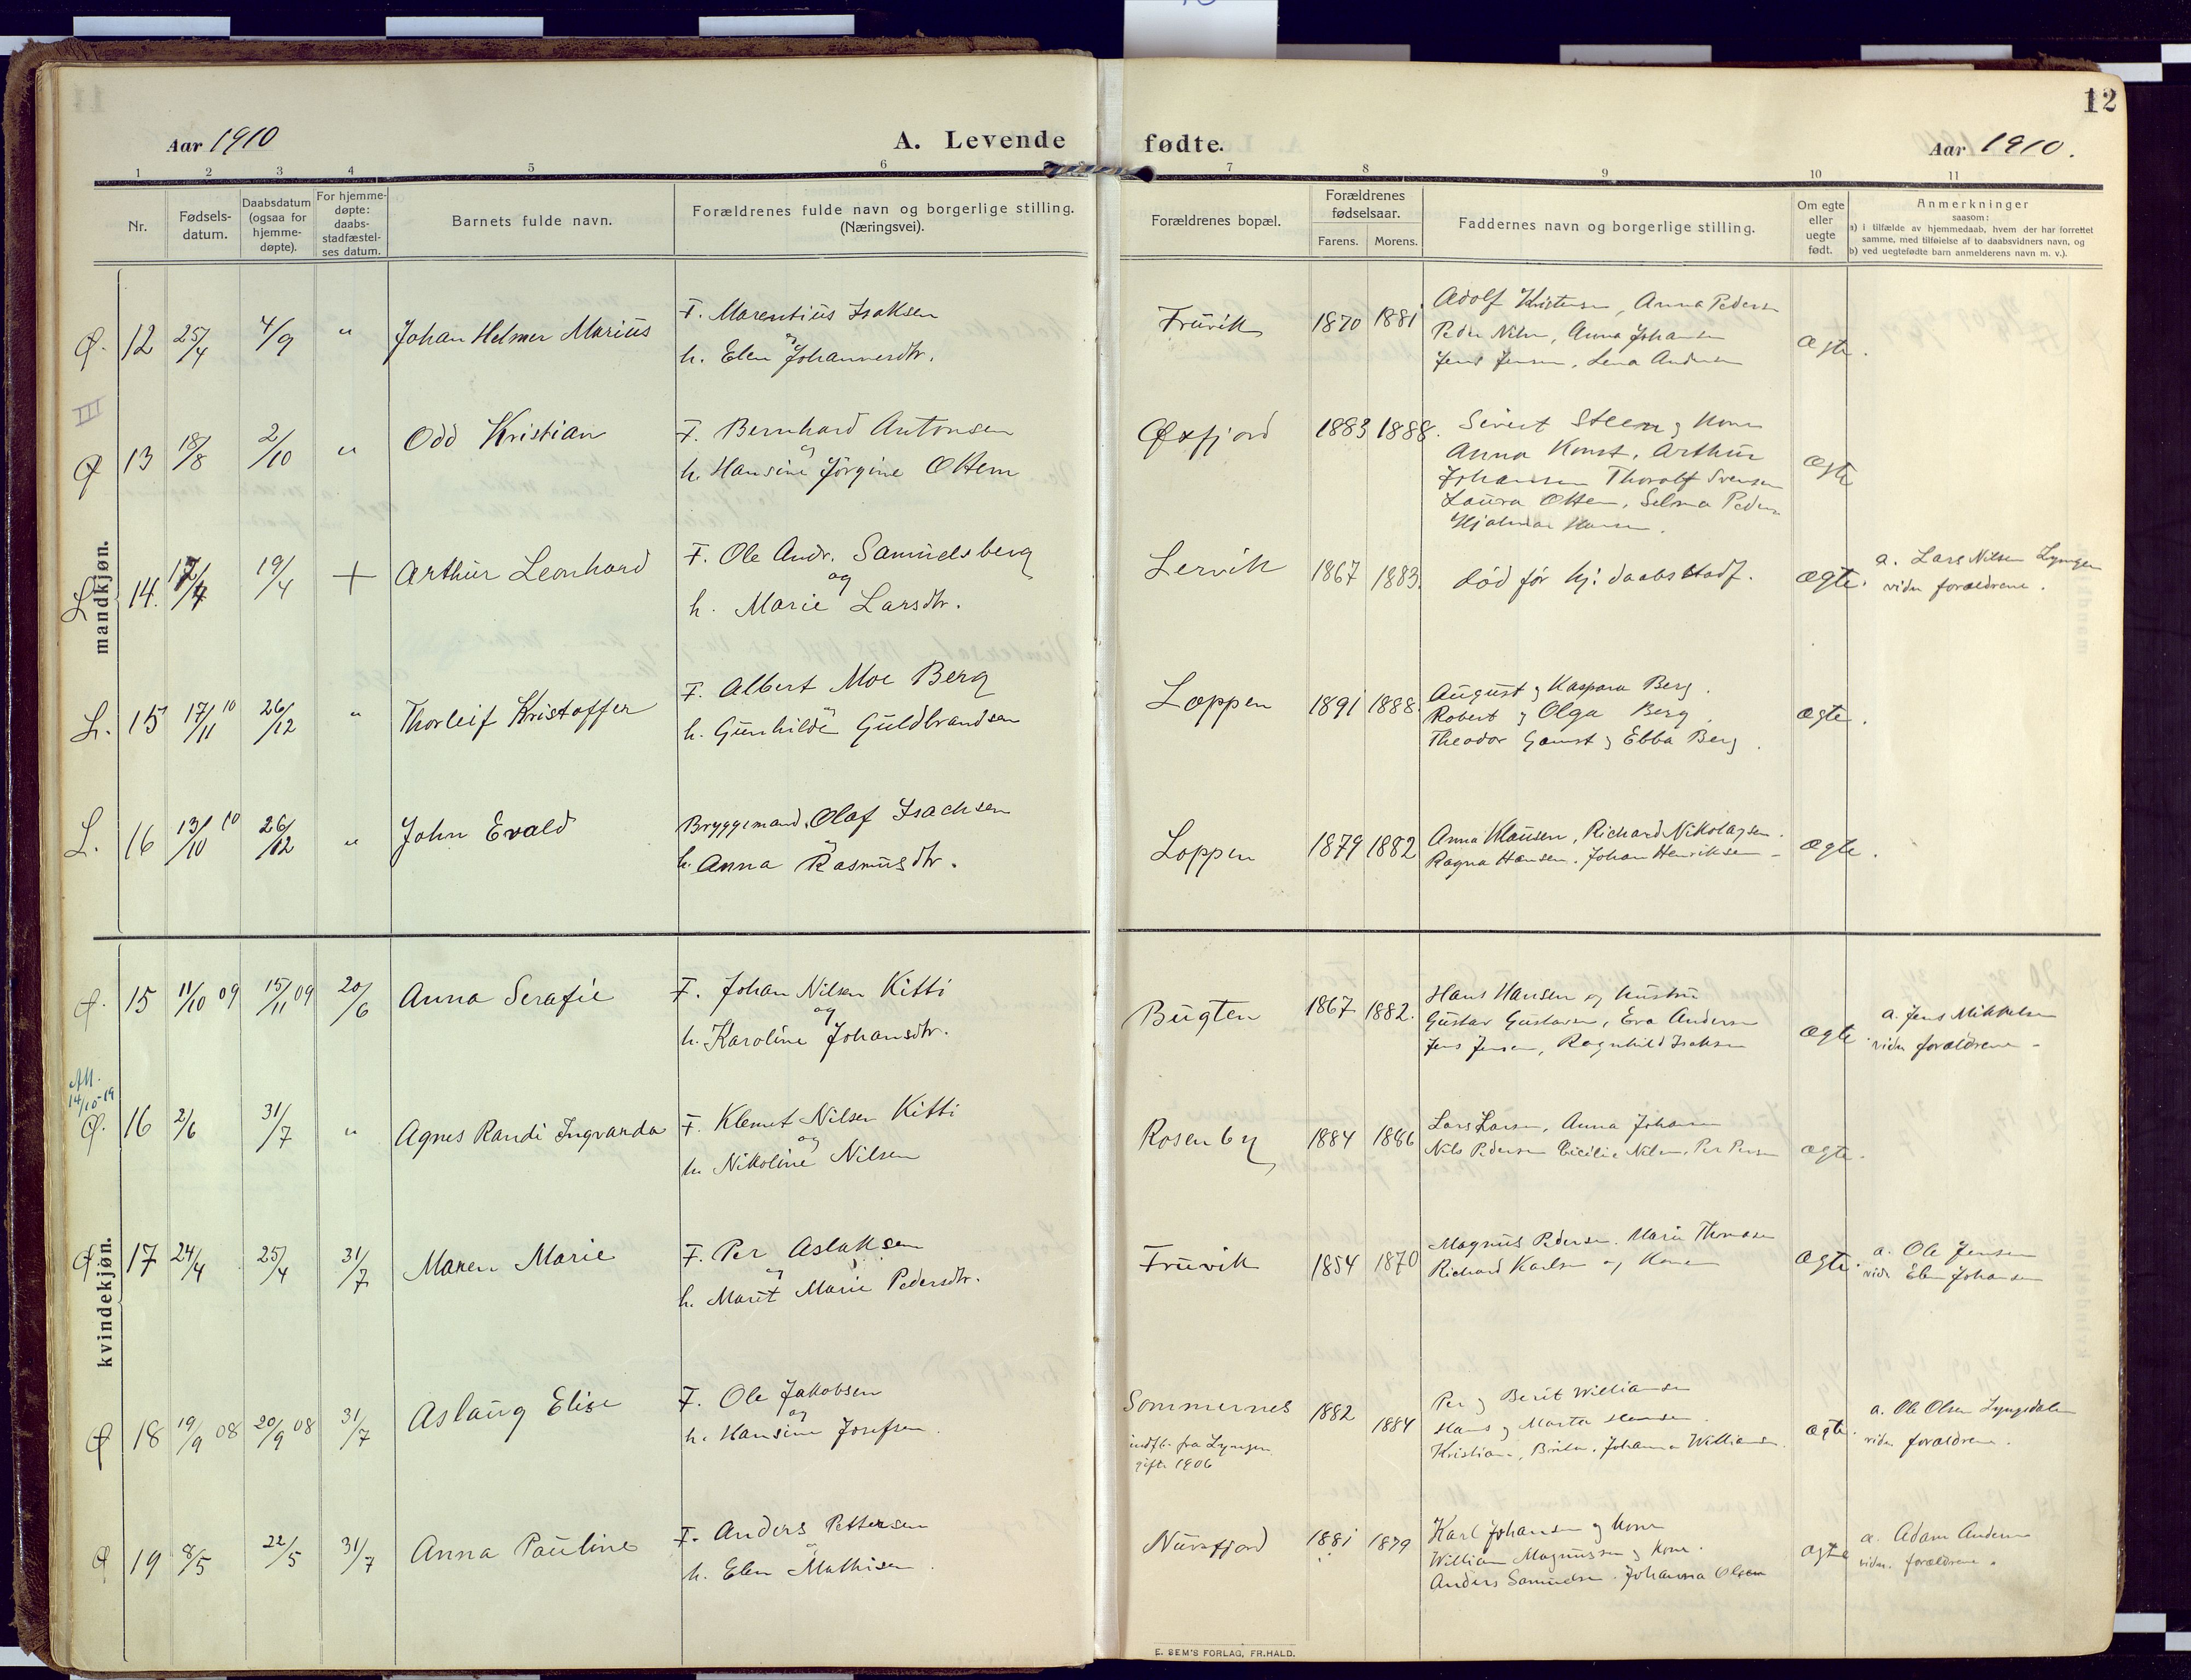 12
Aar 1910
A. Levende fødte.
Aar 1910.
1 2 3 4 5 6 7 8 9 10 11
Nr.
Fødsels-
datum.
Daabsdatum
(ogsaa for
hjemme-
døpte).
For hjemme-
døpte:
daabs-
stadfæstel-
ses datum.
Barnets fulde navn.
Forældrenes fulde navn og borgerlige stilling.
(Næringsvei).
Forældrenes bopæl.
Forældrenes
fødselsaar.
Farens. Morens.
Faddernes navn og borgerlige stilling.
Om egte
eller
uegte
født.
Anmerkninger
saasom:
a) i tilfælde av hjemmedaab, hvem der har forrettet
samme, med tilføielse af to daabsvidners navn, og
b) ved uegtefødte barn anmelderens navn m. v.).
mandkjøn.
Ø. 12 25/4 4/9 " Johan Helmer Marius
F. Marentius Isaksen
og
h. Elen Johannesdtr.
Fruvik 1870 1881
Adolf Kristensen, Anna Pedersen
Peder Nilsen, Anna Johansen
Jens Jensen, Lena Andersen
Ægte.
III
Ø 13 18/8 2/10 " Odd Kristian
F. Bernhard Antonsen
og
h. Hansine Jørgine Ottem
Øxfjord 1883 1888.
Sivert Steen og Kone
Anna Konst, Arthur
Johansen Thorolf Svensen
Laura Ottem, Selma Peders
Hjalmar Hansen.
Ægte
L 14. 17/4 19/4 + Arthur Leonhard
F. Ole Andr. Samuelsberg
og
h. Marie Larsdtr.
Lervik 1867 1883.
død før hj: daabs stadf.
ægte.
a. Lars Nilsen Lyngen
vidn forældrene.
L. 15 17/11 10 26/12 " Thorleif Kristoffer
F. Albert Moe Berg
og
h. Gunhilde Guldbrandsen
Loppen 1891 1888.
August og Kaspara Berg.
Robert og Olga Berg.
Theodor Gamst og Ebba Berg.
ægte.
L. 16 13/10 10 26/12 " John Evald
Bryggemand. Olaf Isachsen
og
h. Anna Rasmusdtr.
Loppen 1879 1882
Anna Klausen, Richard Nikolaysen.
Ragna Hansen. Johan Henriksen -
Ægte.
kvindekjøn.
Ø. 15 11/10 09 15/11 09 20/6 Anna Serafie
F. Johan Nilsen Kitti
og
h. Karoline Johansdtr.
Bugten 1867 1882.
Hans Hansen og hustru
Gustav Gustavsen, Eva Andersen
Jens Jensen, Ragnhild Isaksen
ægte.
a. Jens Mikkelsen
vidn forældrene -
Att.
14/10-19
Ø. 16 2/6 31/7 " Agnes Randi Ingvarda
F. Klemet Nilsen Kitti
og
h. Nikoline Nilsen
Rosenby 1884 1886
Lars Larsen, Anna Johansen
Nils Pedersen Cicilie Nilsen, Per Persen
ægte.
Ø. 17 24/4 25/4 31/7 Maren Marie
F. Per Aslaksen
og
h. Marit Marie Pedersdtr.
Fruvik 1854 1870
Magnus Pedersen. Marie Thomasen
Richard Karlsen og Kone
Ægte.
a. Ole Jensen
vidn Elen Johansen
Ø 18 19/9 08 20/9 08 31/7 Aslaug Elise
F. Ole Jakobsen
og
h. Hansine Josefsen.
Sommernes
indfl. fra Lyngen
gifte 1906
1882 1884
Per og Berit Williamsen
Hans og Marta Hansen.
Kristian, Johanna Williamsen.
ægte.
a. Ole Olsen Lyngsdalen
vidn forældrene.
Ø 19 8/5 22/5 31/7 Anna Pauline
F. Anders Pettersen
og
h. Elen Mathisen.
Nuvsfjord 1881 1879
Karl Johansen og Kone
William Magnussen og Kone.
Anders Samuelsen. Johanna Olsen
ægte
a. Adam Andersen
vidn. forældrene.
E. SEM'S FORLAG, FR.HALD.